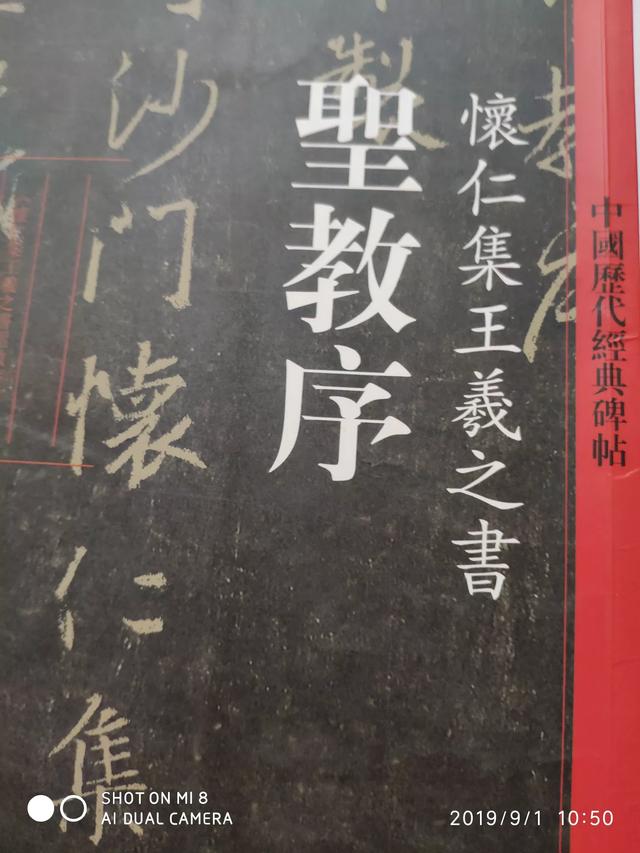 中國歷代經典碑帖
懷仁集王羲之書
聖教序
製
沙门懷仁集
SHOT ON MI 8
AI DUAL CAMERA
2019/9/1 10:50